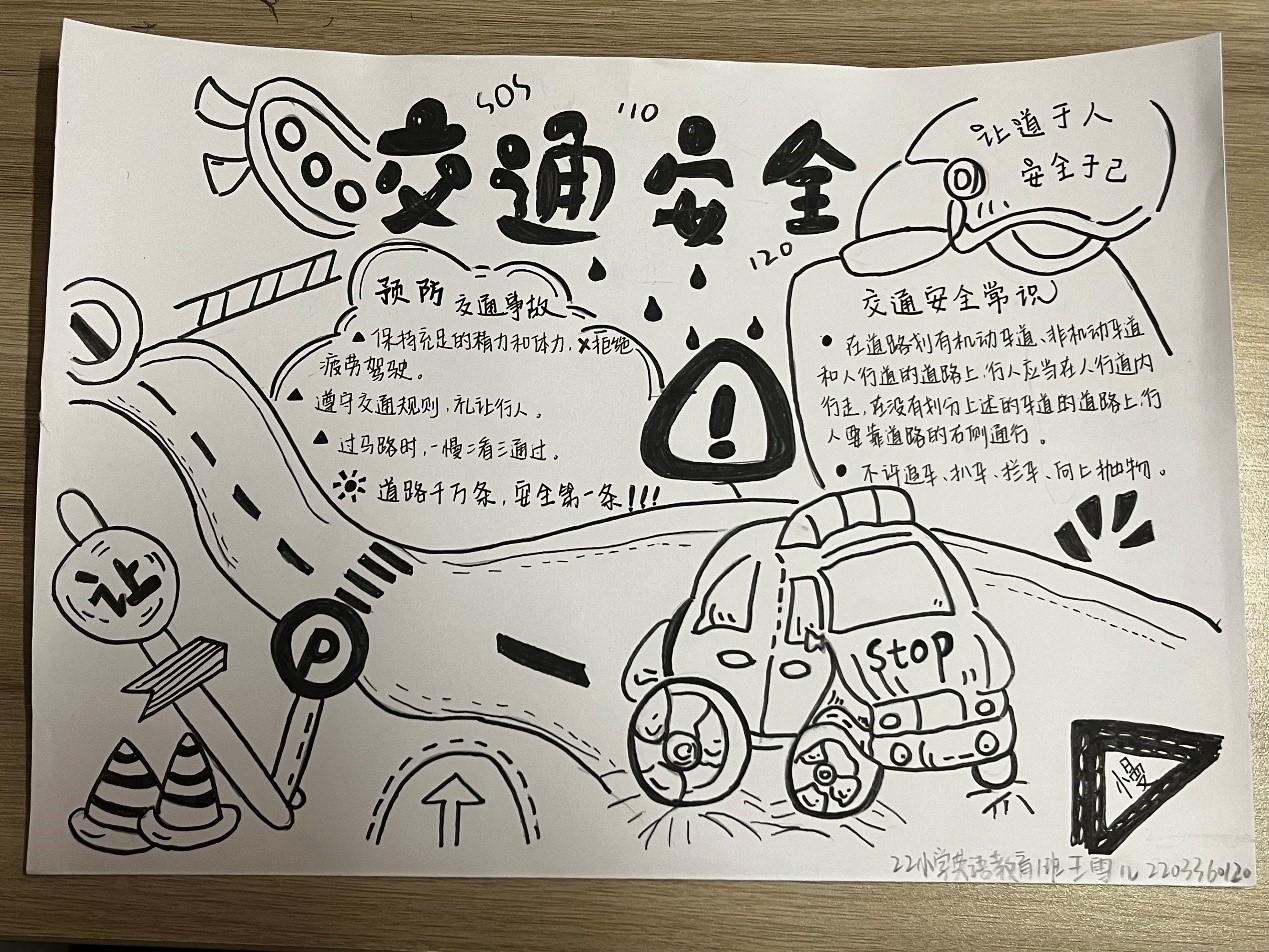 SOS
110
交通安全
让道于人
安全于己
120
预防交通事故
▲保持充足的精力和体力,拒绝
疲劳驾驶。
▲遵守交通规则,礼让行人。
▲过马路时,一慢二看三通过。
道路千万条,安全第一条!!!
交通安全常识
●在道路划有机动车道、非机动车道
和人行道的道路上,行人应当在人行道内
行走,在没有划分上述的车道的道路上,行
人要靠道路的右侧通行。
●不许追车、扒车、拦车、向上抛物。
!
让
P
stop
慢
22小学英语教育1班王雪儿 2203360120